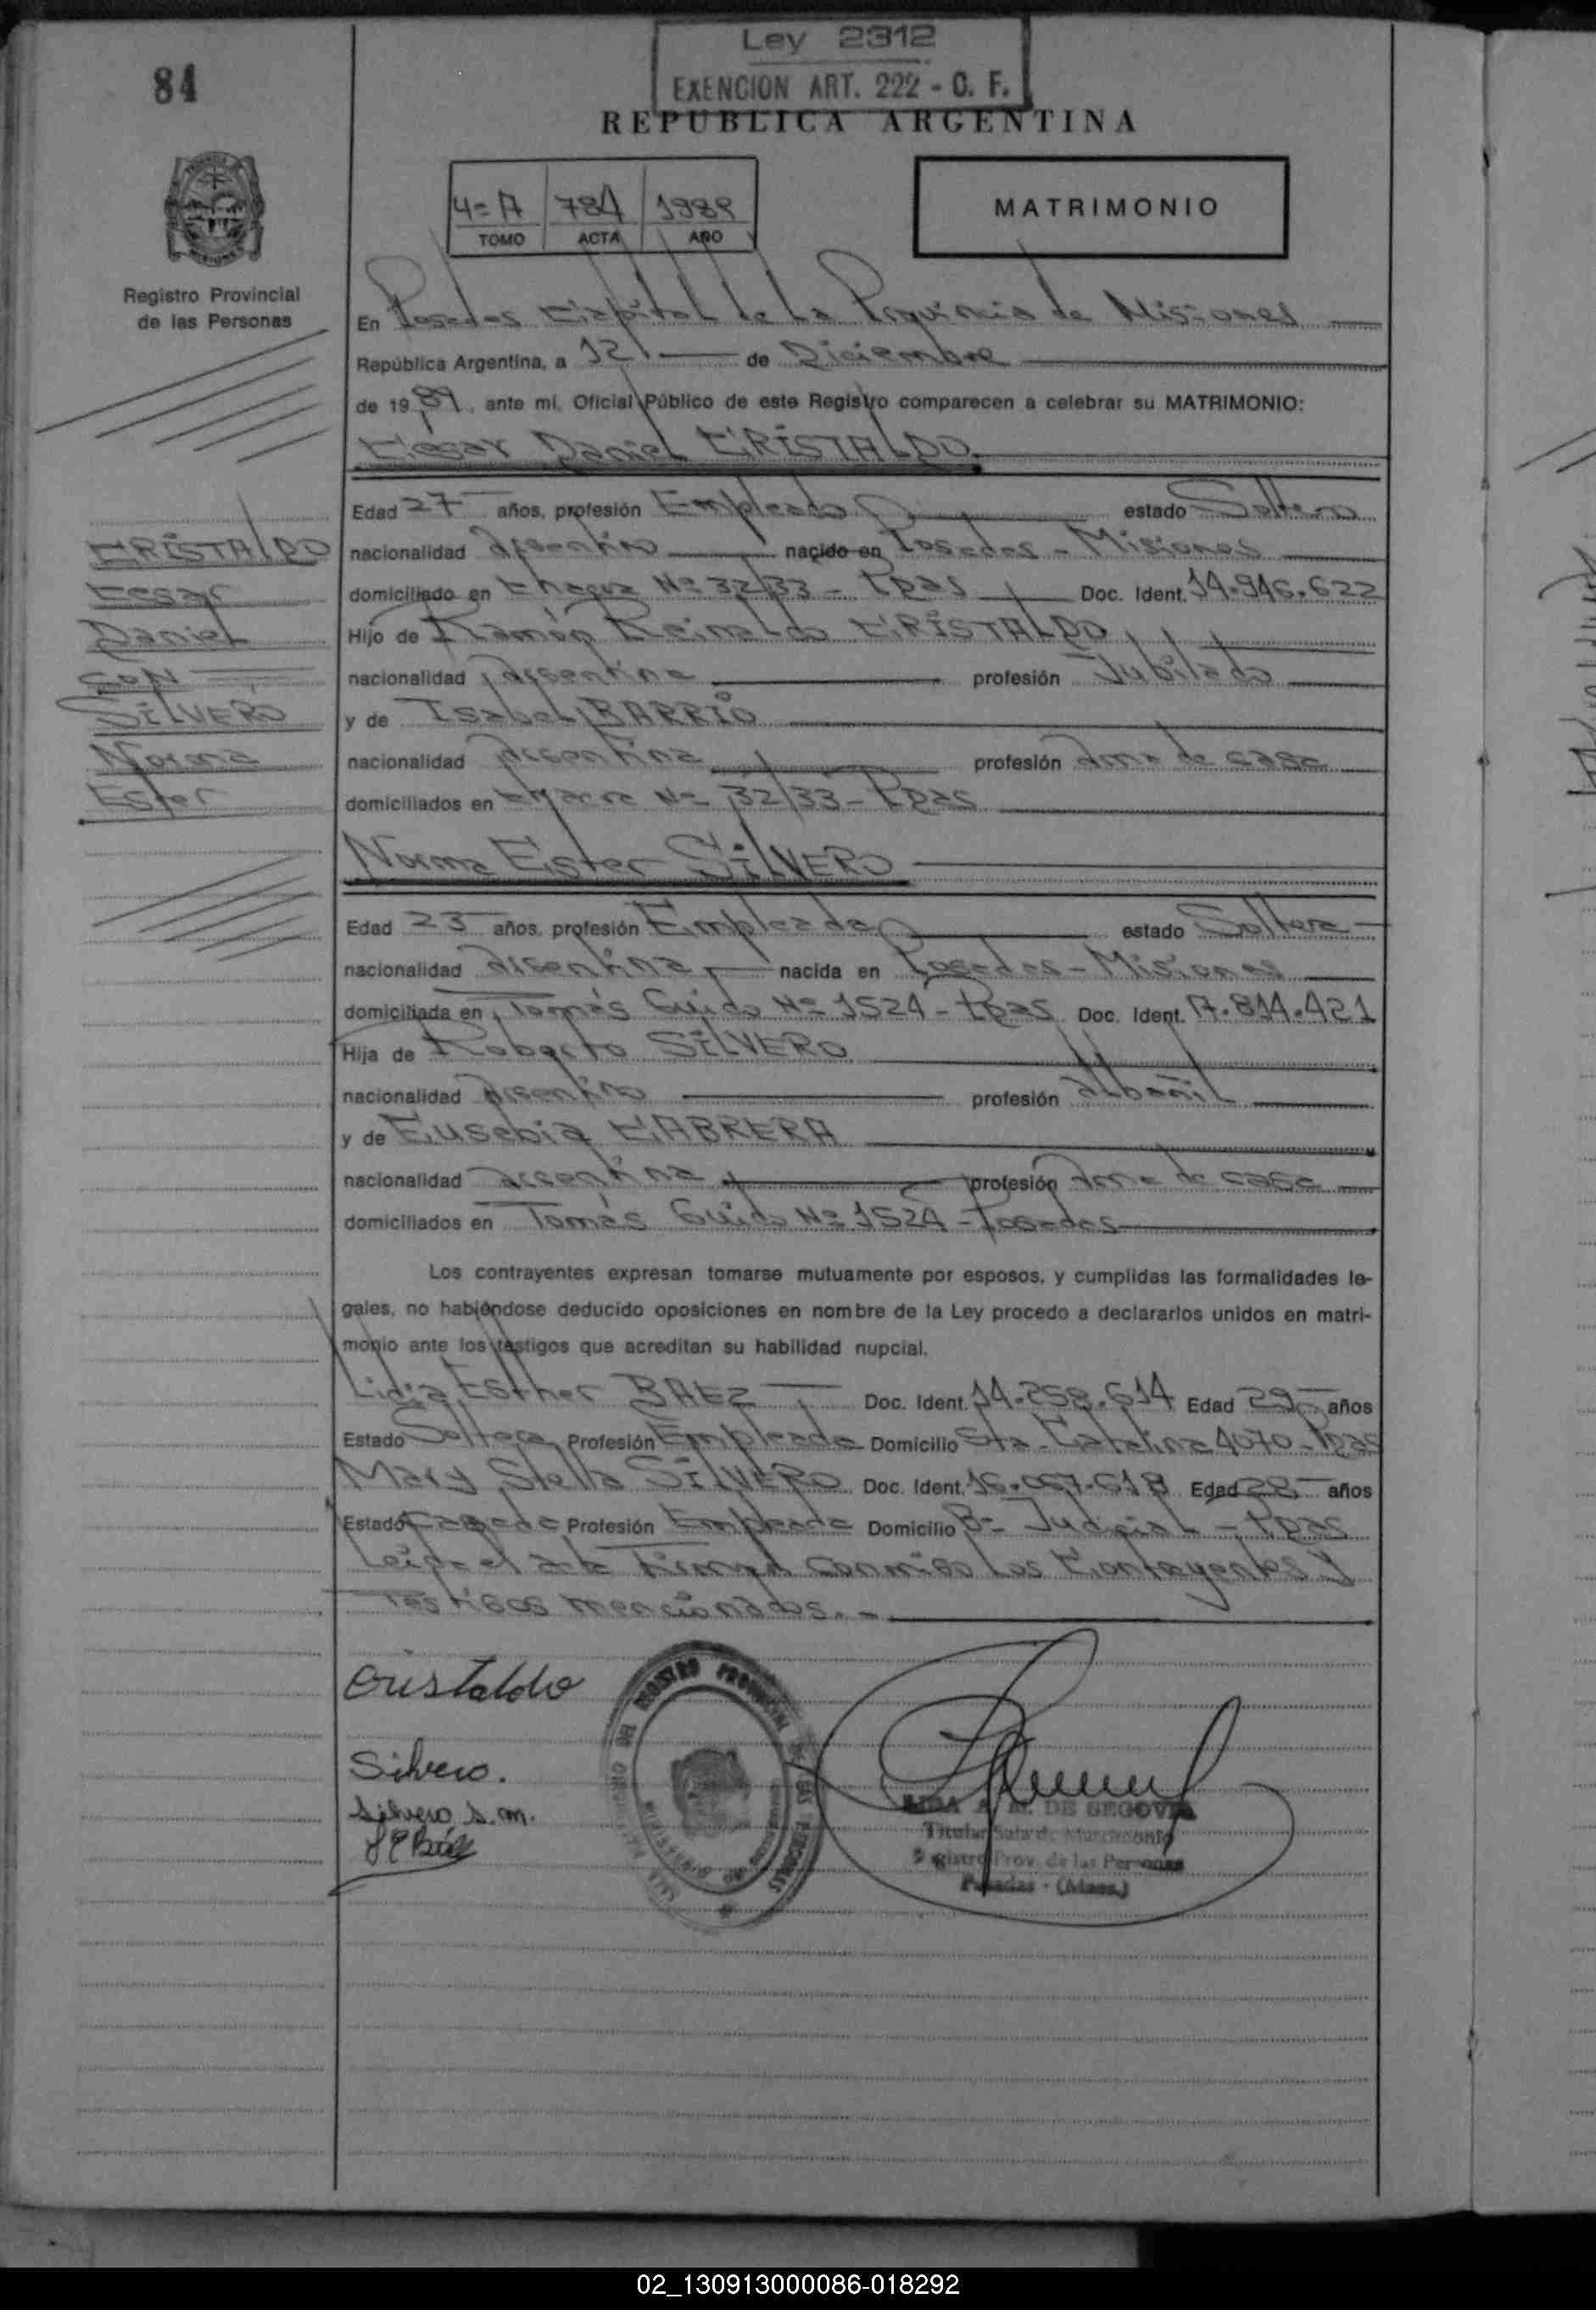 Ley 2312
EXENCION ART. 222 - O. F.
84
REPUBLICA ARGENTINA
4=A 784 1989
TOMO ACTA AÑO
MATRIMONIO
Registro Provincial
de las Personas
En Posadas Capital de la Provincia de Misiones
República Argentina, a 12 de Diciembre
de 1989, ante mí, Oficial Público de este Registro comparecen a celebrar su MATRIMONIO:
César Daniel CRISTALDO
Edad 27 años, profesión Empleado estado Soltero
nacionalidad Argentino nacido en Posadas - Misiones
domiciliado en Nº 32/33 - Pdas Doc. Ident. 14.946.622
Hijo de Ramón Reinaldo CRISTALDO
nacionalidad Argentina profesión Jubilado
y de Isabel BARRIO
nacionalidad Argentina profesión Ama de casa
domiciliados en Nº 32/33 - Pdas
CRISTALDO
Cesar
Daniel
CON
SILVERO
Norma
Ester
Norma Ester SILVERO
Edad 23 años, profesión Empleada estado Soltera
nacionalidad Argentina nacida en Posadas - Misiones
domiciliada en Tomás Guido Nº 1524 - Pdas Doc. Ident. 17.814.421
Hija de Roberto SILVERO
nacionalidad Argentino profesión Albañil
y de Eusebia CABRERA
nacionalidad Argentina profesión Ama de casa
domiciliados en Tomás Guido Nº 1524 - Posadas
Los contrayentes expresan tomarse mutuamente por esposos, y cumplidas las formalidades le-
gales, no habiéndose deducido oposiciones en nombre de la Ley procedo a declararlos unidos en matri-
monio ante los testigos que acreditan su habilidad nupcial.
Lidia Esther BAEZ Doc. Ident. 14.258.614 Edad 29 años
Estado Soltera Profesión Empleada Domicilio Sta. Catalina 4070 - Pdas
Mary Stella SILVERO Doc. Ident. 16.067.618 Edad 28 años
Estado Casada Profesión Empleada Domicilio Bº Judicial - Pdas
Leída el acta Firman conmigo los Contrayentes y
Testigos mencionados. -
Cristaldo
Silvero.
Silvero S. m.
LIDA A. M. DE SEGOVIA
Titular Sala de Matrimonio
Registro Prov. de las Personas
Posadas - (Mnes.)
02_130913000086-018292